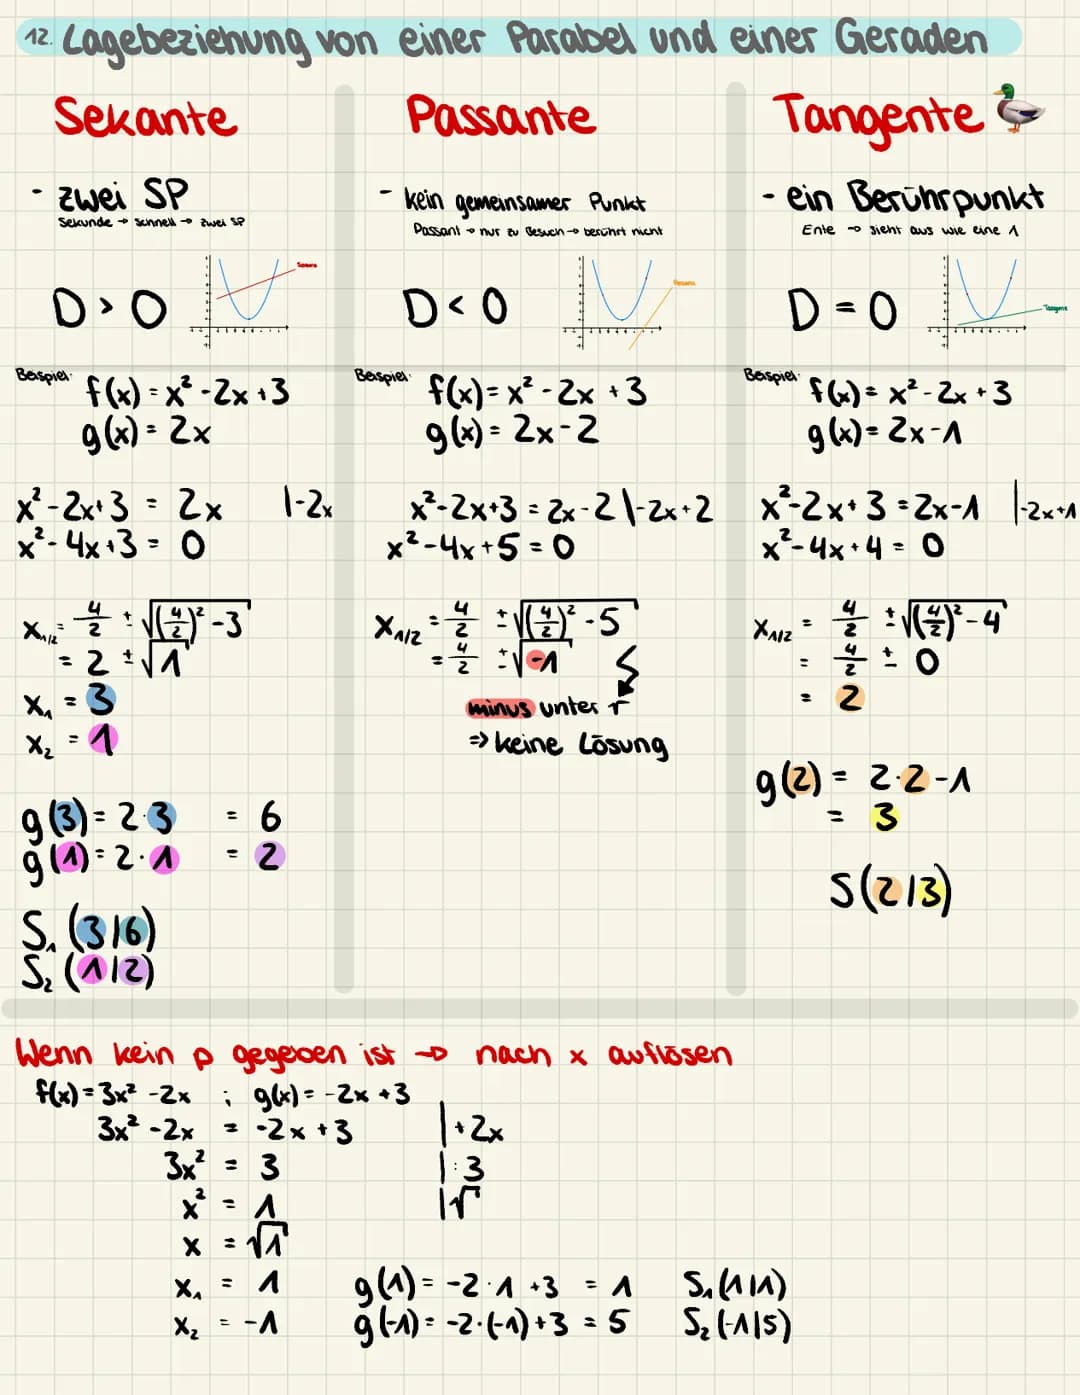 12. Lagebeziehung von einer Parabel und einer Geraden
Sekante
- zwei SP
Sekunde → schnell → zwei SP
D > 0
Sekante
Beispiel:
f(x) = x² - 2x + 3
g(x) = 2x
x² - 2x + 3 = 2x |-2x
x² - 4x + 3 = 0
x₁/₂ = 4/2 ± √((4/2)² - 3)
= 2 ± √1
x₁ = 3
x₂ = 1
g(3) = 2·3 = 6
g(1) = 2·1 = 2
S₁ (3|6)
S₂ (1|2)
Passante
- kein gemeinsamer Punkt
Passant → nur zu Besuch → berührt nicht
D < 0
Passante
Beispiel:
f(x) = x² - 2x + 3
g(x) = 2x - 2
x² - 2x + 3 = 2x - 2 |-2x + 2
x² - 4x + 5 = 0
x₁/₂ = 4/2 ± √((4/2)² - 5)
= 4/2 ± √-1
minus unter √
⇒ keine Lösung
Tangente 🦆
- ein Berührpunkt
Ente → sieht aus wie eine 1
D = 0
Tangente
Beispiel:
f(x) = x² - 2x + 3
g(x) = 2x - 1
x² - 2x + 3 = 2x - 1 |-2x + 1
x² - 4x + 4 = 0
x₁/₂ = 4/2 ± √((4/2)² - 4)
= 4/2 ± 0
= 2
g(2) = 2·2 - 1
= 3
S(2|3)
Wenn kein p gegeben ist → nach x auflösen
f(x) = 3x² - 2x ; g(x) = -2x + 3
3x² - 2x = -2x + 3 | + 2x
3x² = 3 | : 3
x² = 1 | √
x = √1
x₁ = 1 g(1) = -2·1 + 3 = 1 S₁(1|1)
x₂ = -1 g(-1) = -2·(-1) + 3 = 5 S₂(-1|5)